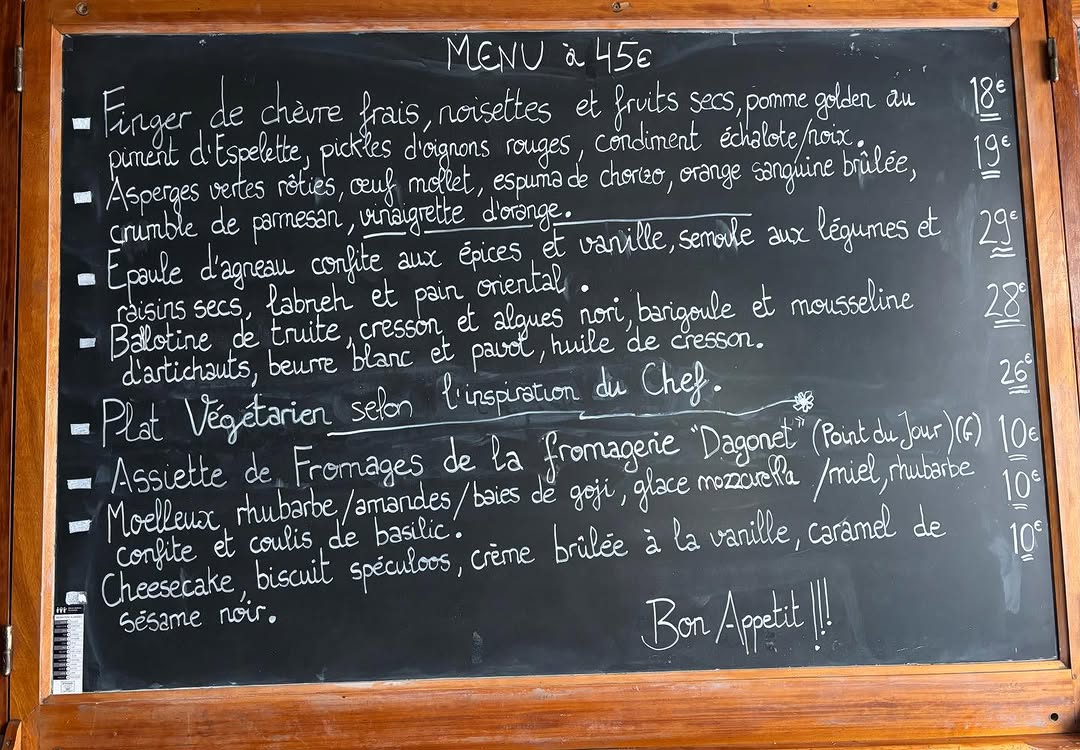 MENU à 45€
Finger de chèvre frais, noisettes et fruits secs, pomme golden au 18€
piment d'Espelette, pickles d'oignons rouges, condiment échalote/noix.
Asperges vertes rôties, œuf mollet, espuma de chorizo, orange sanguine brûlée, 19€
crumble de parmesan, vinaigrette d'orange.
Epaule d'agneau confite aux épices et vanille, semoule aux légumes et 29€
raisins secs, labneh et pain oriental.
Ballotine de truite, cresson et algues nori, barigoule et mousseline 28€
d'artichauts, beurre blanc et pavot, huile de cresson.
Plat Végétarien selon l'inspiration du Chef. 26€
Assiette de Fromages de la fromagerie "Dagonet" (Point du Jour) (6) 10€
Moelleux, rhubarbe/amandes/baies de goji, glace mozzarella /miel, rhubarbe 10€
confite et coulis de basilic.
Cheesecake, biscuit spéculoos, crème brûlée à la vanille, caramel de 10€
sésame noir.
Bon Appetit !!!